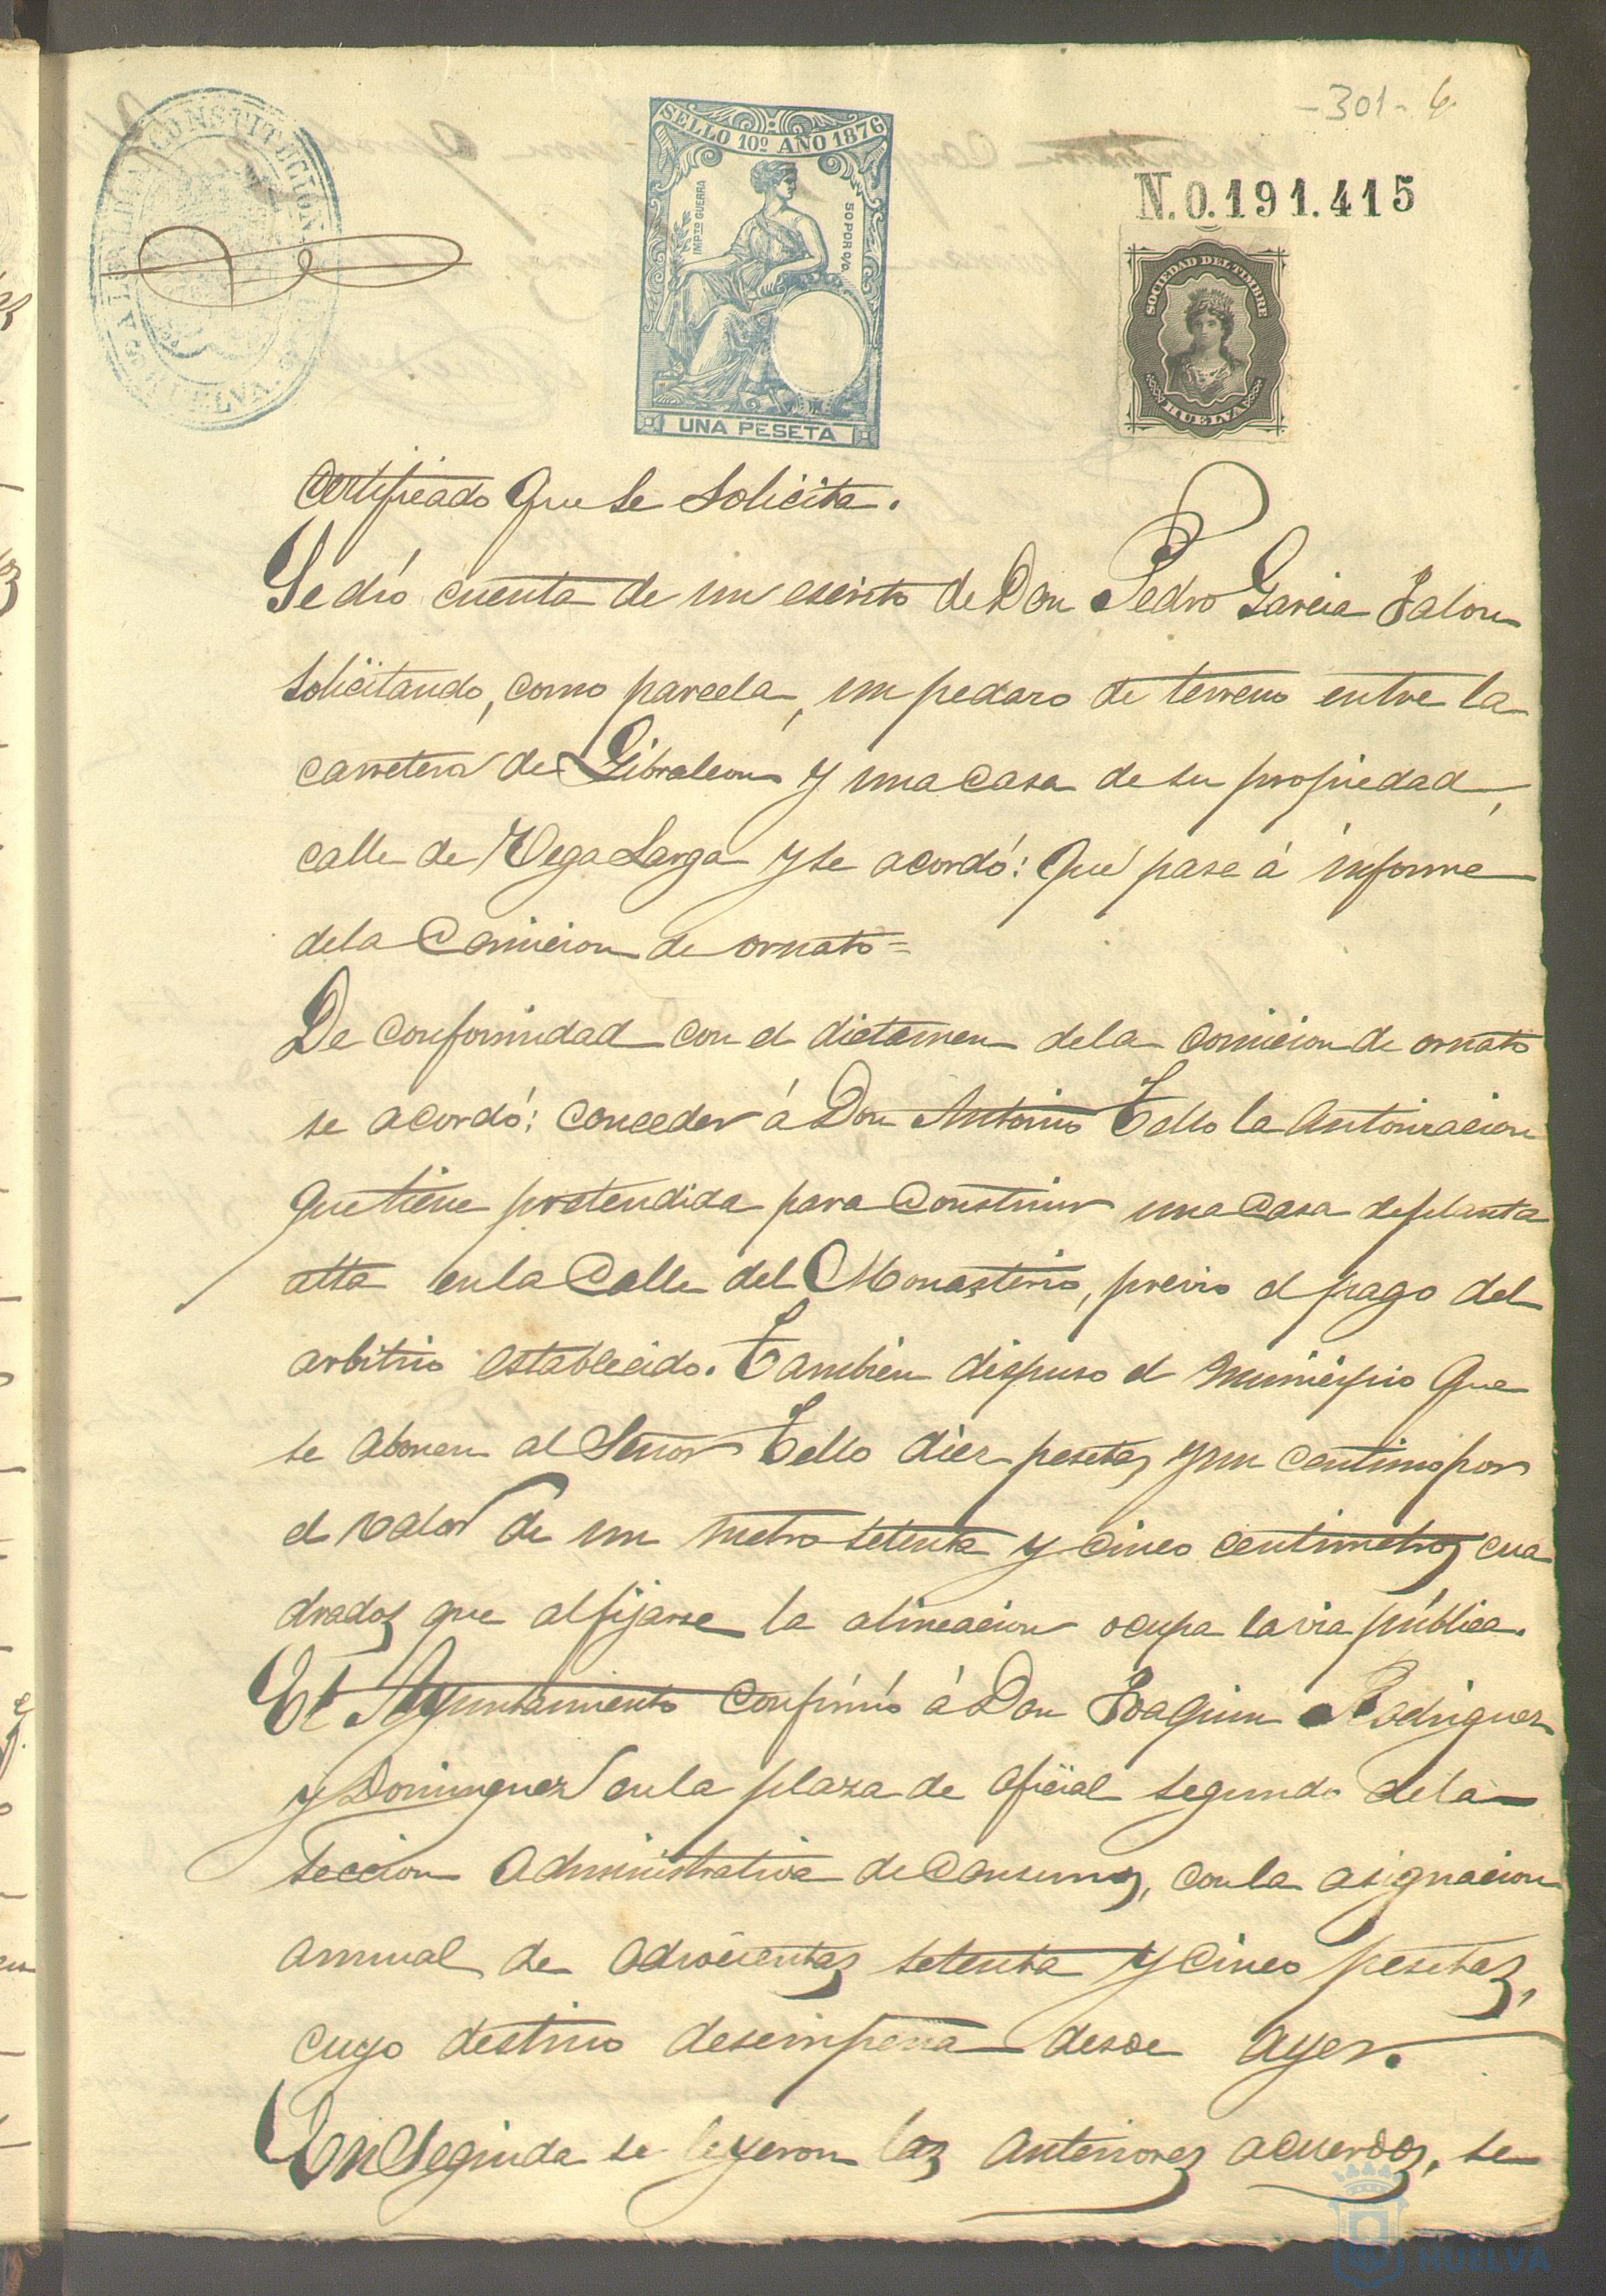 -301- 6.
ALCALDIA CONSTITUCIONAL
HUELVA
SELLO 10º AÑO 1876
IMPTO GUERRA
50 POR 0/0
UNA PESETA
N.0.191.415
SOCIEDAD DEL TIMBRE
HUELVA
Certificado que se solicita.
Se dió cuenta de un escrito de Don Pedro Garcia Jalon
solicitando, como parcela, un pedazo de terreno entre la
carretera de Gibraleon y una casa de su propiedad,
calle de Vega Larga y se acordó: Que pase á informe
de la Comicion de ornato=
De conformidad con el dictamen de la comicion de ornato
se acordó: conceder á Don Antonio Tello la autorizacion
que tiene pretendida para construir una casa de planta
alta en la Calle del Monasterio, previo el pago del
arbitrio establecido. Tambien dispuso el Municipio que
se abonen al Señor Tello diez pesetas y un centimo por
el valor de un metro setenta y cinco centimetros cua
drados que al fijarse la alineacion ocupa la via pública.
El Ayuntamiento confirió á Don Joaquin Rodriguez
y Dominguez en la plaza de oficial segundo de la
seccion administrativa de Consumos, con la asignacion
annual de odrocientas setenta y cinco pesetas,
cuyo destino desempeña desde ayer.
En seguida se leyeron las anteriores acuerdos, se
HUELVA